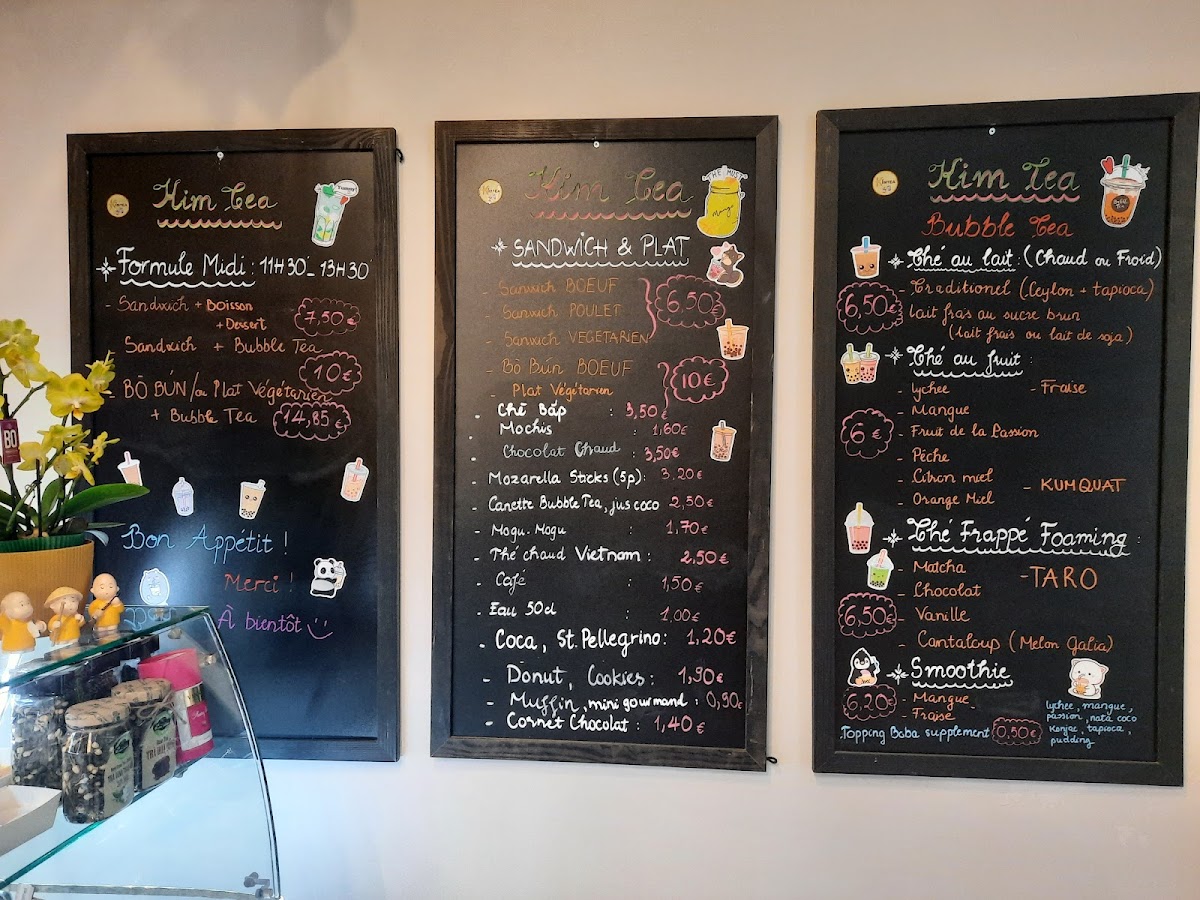 Kim Tea
Yummy!
Formule Midi : 11H30'_ 13H30'
- Sandwich + Boisson
+ Dessert
7,50€
Sandwich + Bubble Tea
10€
- BÒ BÚN /ou Plat Végétarien
+ Bubble Tea
14,85€
Bon Appétit !
Merci !
À bientôt
BO
Kim Tea
Mango
SANDWICH & PLAT
- Sanwich BOEUF
- Sanwich POULET
- Sanwich VEGETARIEN
6,50€
- Bò Bún BOEUF
- Plat Végétarien
10€
- Chè Bắp : 3,50€
- Mochis : 1,60€
- Chocolat Chaud : 3,50€
- Mozarella Sticks (5p): 3,20€
- Canette Bubble Tea, jus coco 2,50€
- Mogu-Mogu : 1,70€
- Thé chaud Vietnam : 2,50€
- Café : 1,50€
- Eau 50cl : 1,00€
- Coca, St. Pellegrino: 1,20€
- Donut, Cookies : 1,90€
- Muffin, mini gourmand : 0,90€
- Cornet Chocolat : 1,40€
Kim Tea
Bubble Tea
Thé au lait : (Chaud ou Froid)
6,50€
- Traditionel (Ceylon + tapioca)
lait frais au sucre brun
(lait frais ou lait de soja)
Thé au fruit :
- lychee
- Fraise
- Mangue
6€
- Fruit de la Passion
- Pêche
- Citron miel
- Orange Miel
- KUMQUAT
Thé Frappé Foaming :
- Matcha
- TARO
- Chocolat
6,50€
- Vanille
- Cantaloup (Melon Galia)
Smoothie
6,20€
- Mangue
- Fraise
Topping Boba supplement 0,50€
lychee, mangue,
passion, nata coco
Konjac, tapioca,
pudding